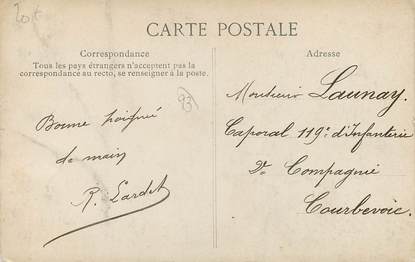 CARTE POSTALE
Correspondance
Tous les pays étrangers n'acceptent pas la
correspondance au recto, se renseigner à la poste.
Adresse
93
Bonne poignée
de main
R. Lardet
Monsieur Launay.
Caporal 119e d'Infanterie
2e Compagnie
Courbevoie.